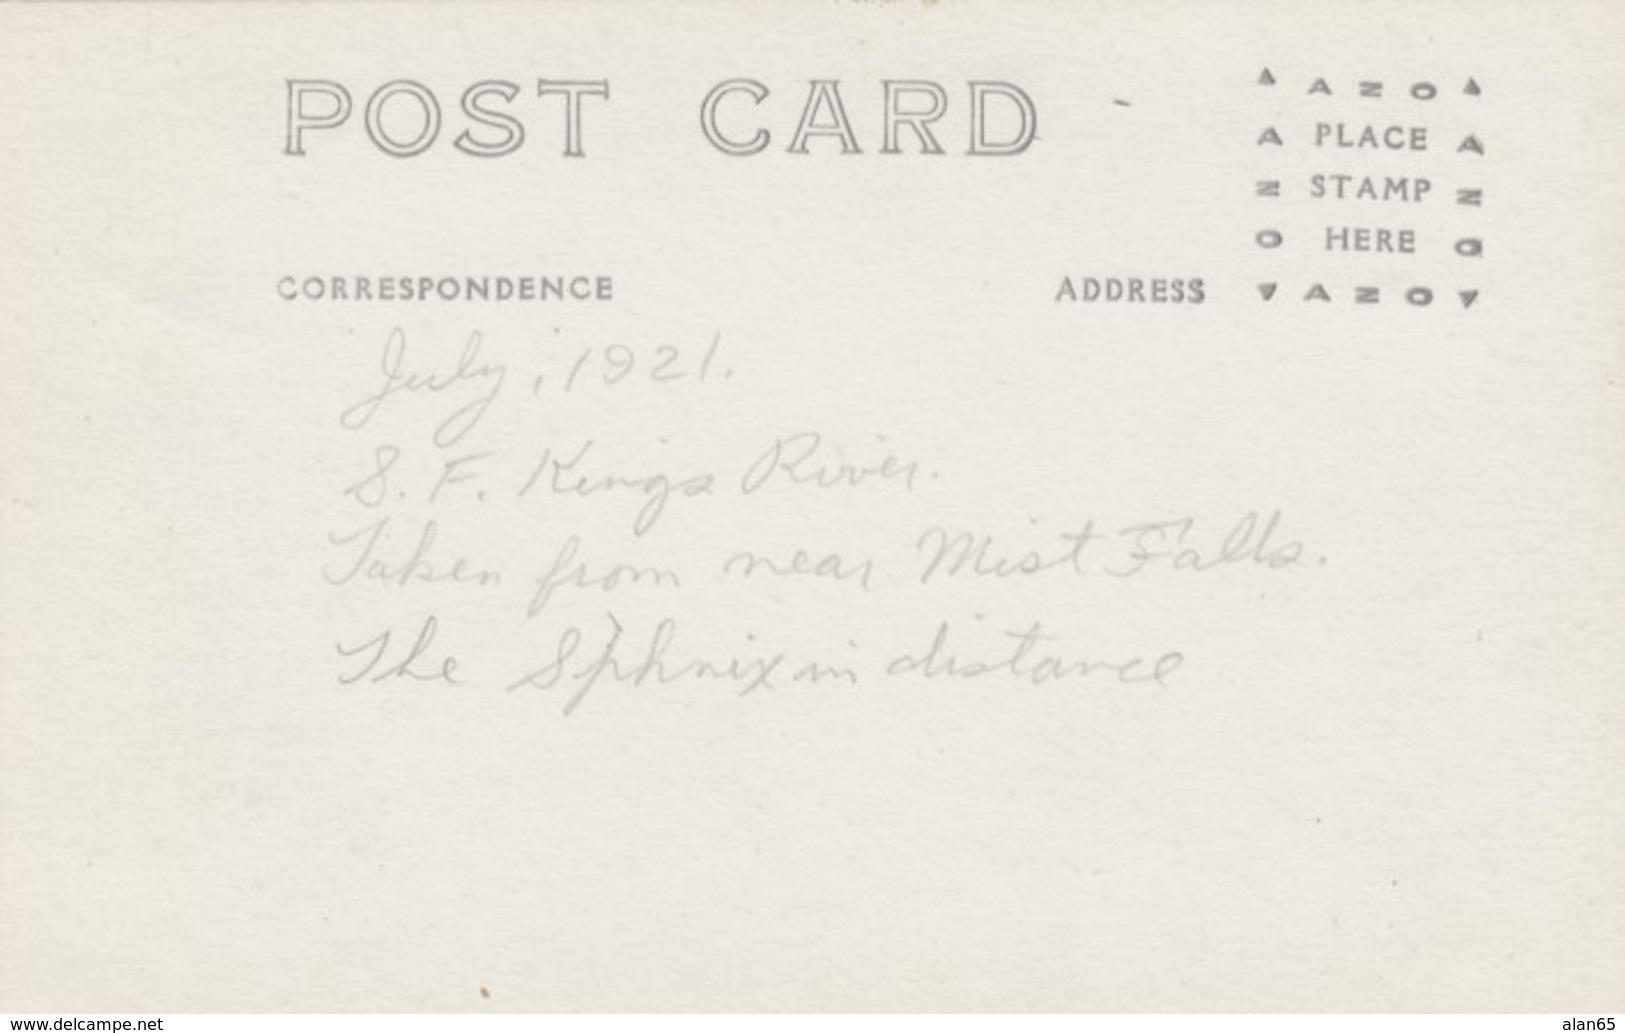 POST CARD
▲ AZO ▲
A PLACE A
Z STAMP Z
O HERE O
▼ AZO ▼
CORRESPONDENCE ADDRESS
July, 1921.
S. F. Kings River.
Taken from near Mist Falls.
The Sphnix in distance
www.delcampe.net alan65